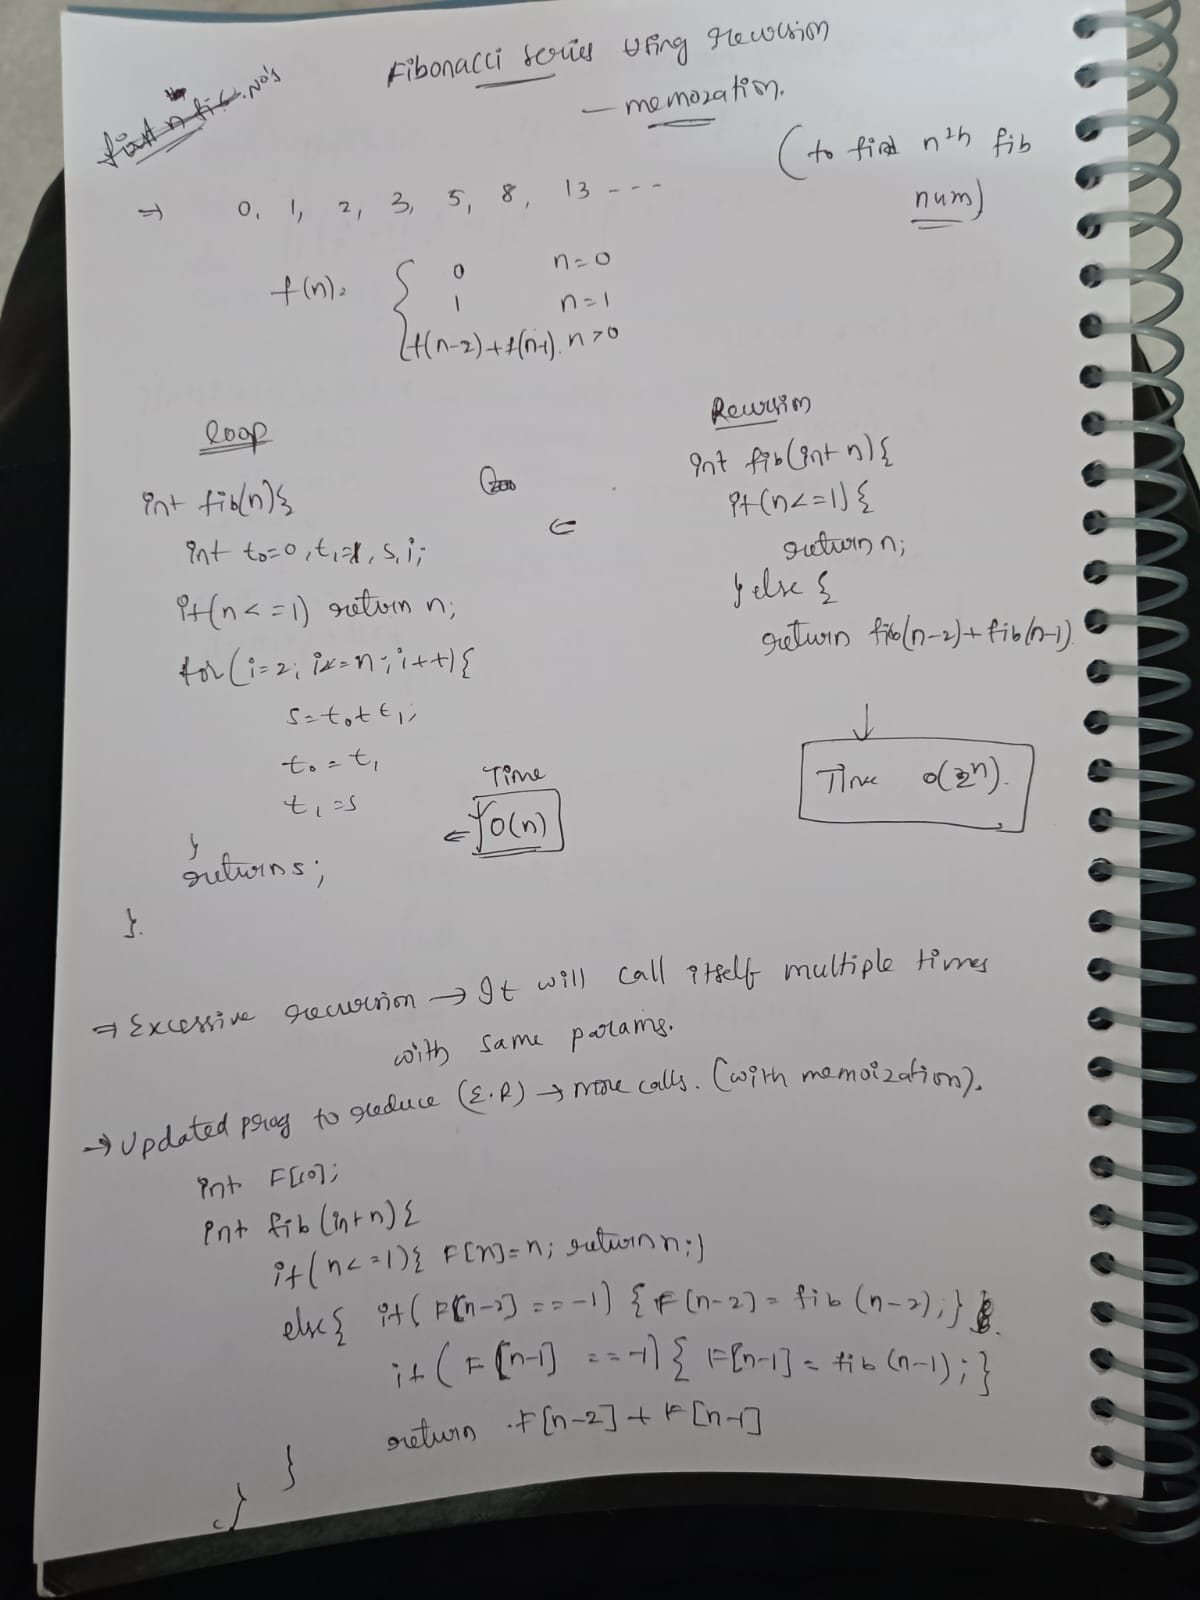 Fibonacci series using recursion
— memozation.
(to find nth fib
num)
⇒ 0, 1, 2, 3, 5, 8, 13 - - -
f(n) = { 0 n=0
1 n=1
f(n-2)+f(n-1). n>0
loop
int fib(n){
int t0=0, t1=1, s, i;
if(n<=1) return n;
for(i=2; i<=n; i++){
s=t0+t1;
t0=t1
t1=s
}
return s;
}.
Time
⇐ O(n)
Recursion
⇐ int fib(int n){
if(n<=1){
return n;
} else {
return fib(n-2)+fib(n-1)
↓
Time O(2^n).
⇒ Excessive recursion → It will call itself multiple times
with same params.
→ Updated prog to reduce (E.R) → more calls. (with memoization).
int F[10];
int fib(int n){
if(n<=1){ F[n]=n; return n;}
else{ if(F[n-2]==-1) {F[n-2]=fib(n-2);}
if(F[n-1]==-1){F[n-1]=fib(n-1);}
return F[n-2]+F[n-1]
}
}